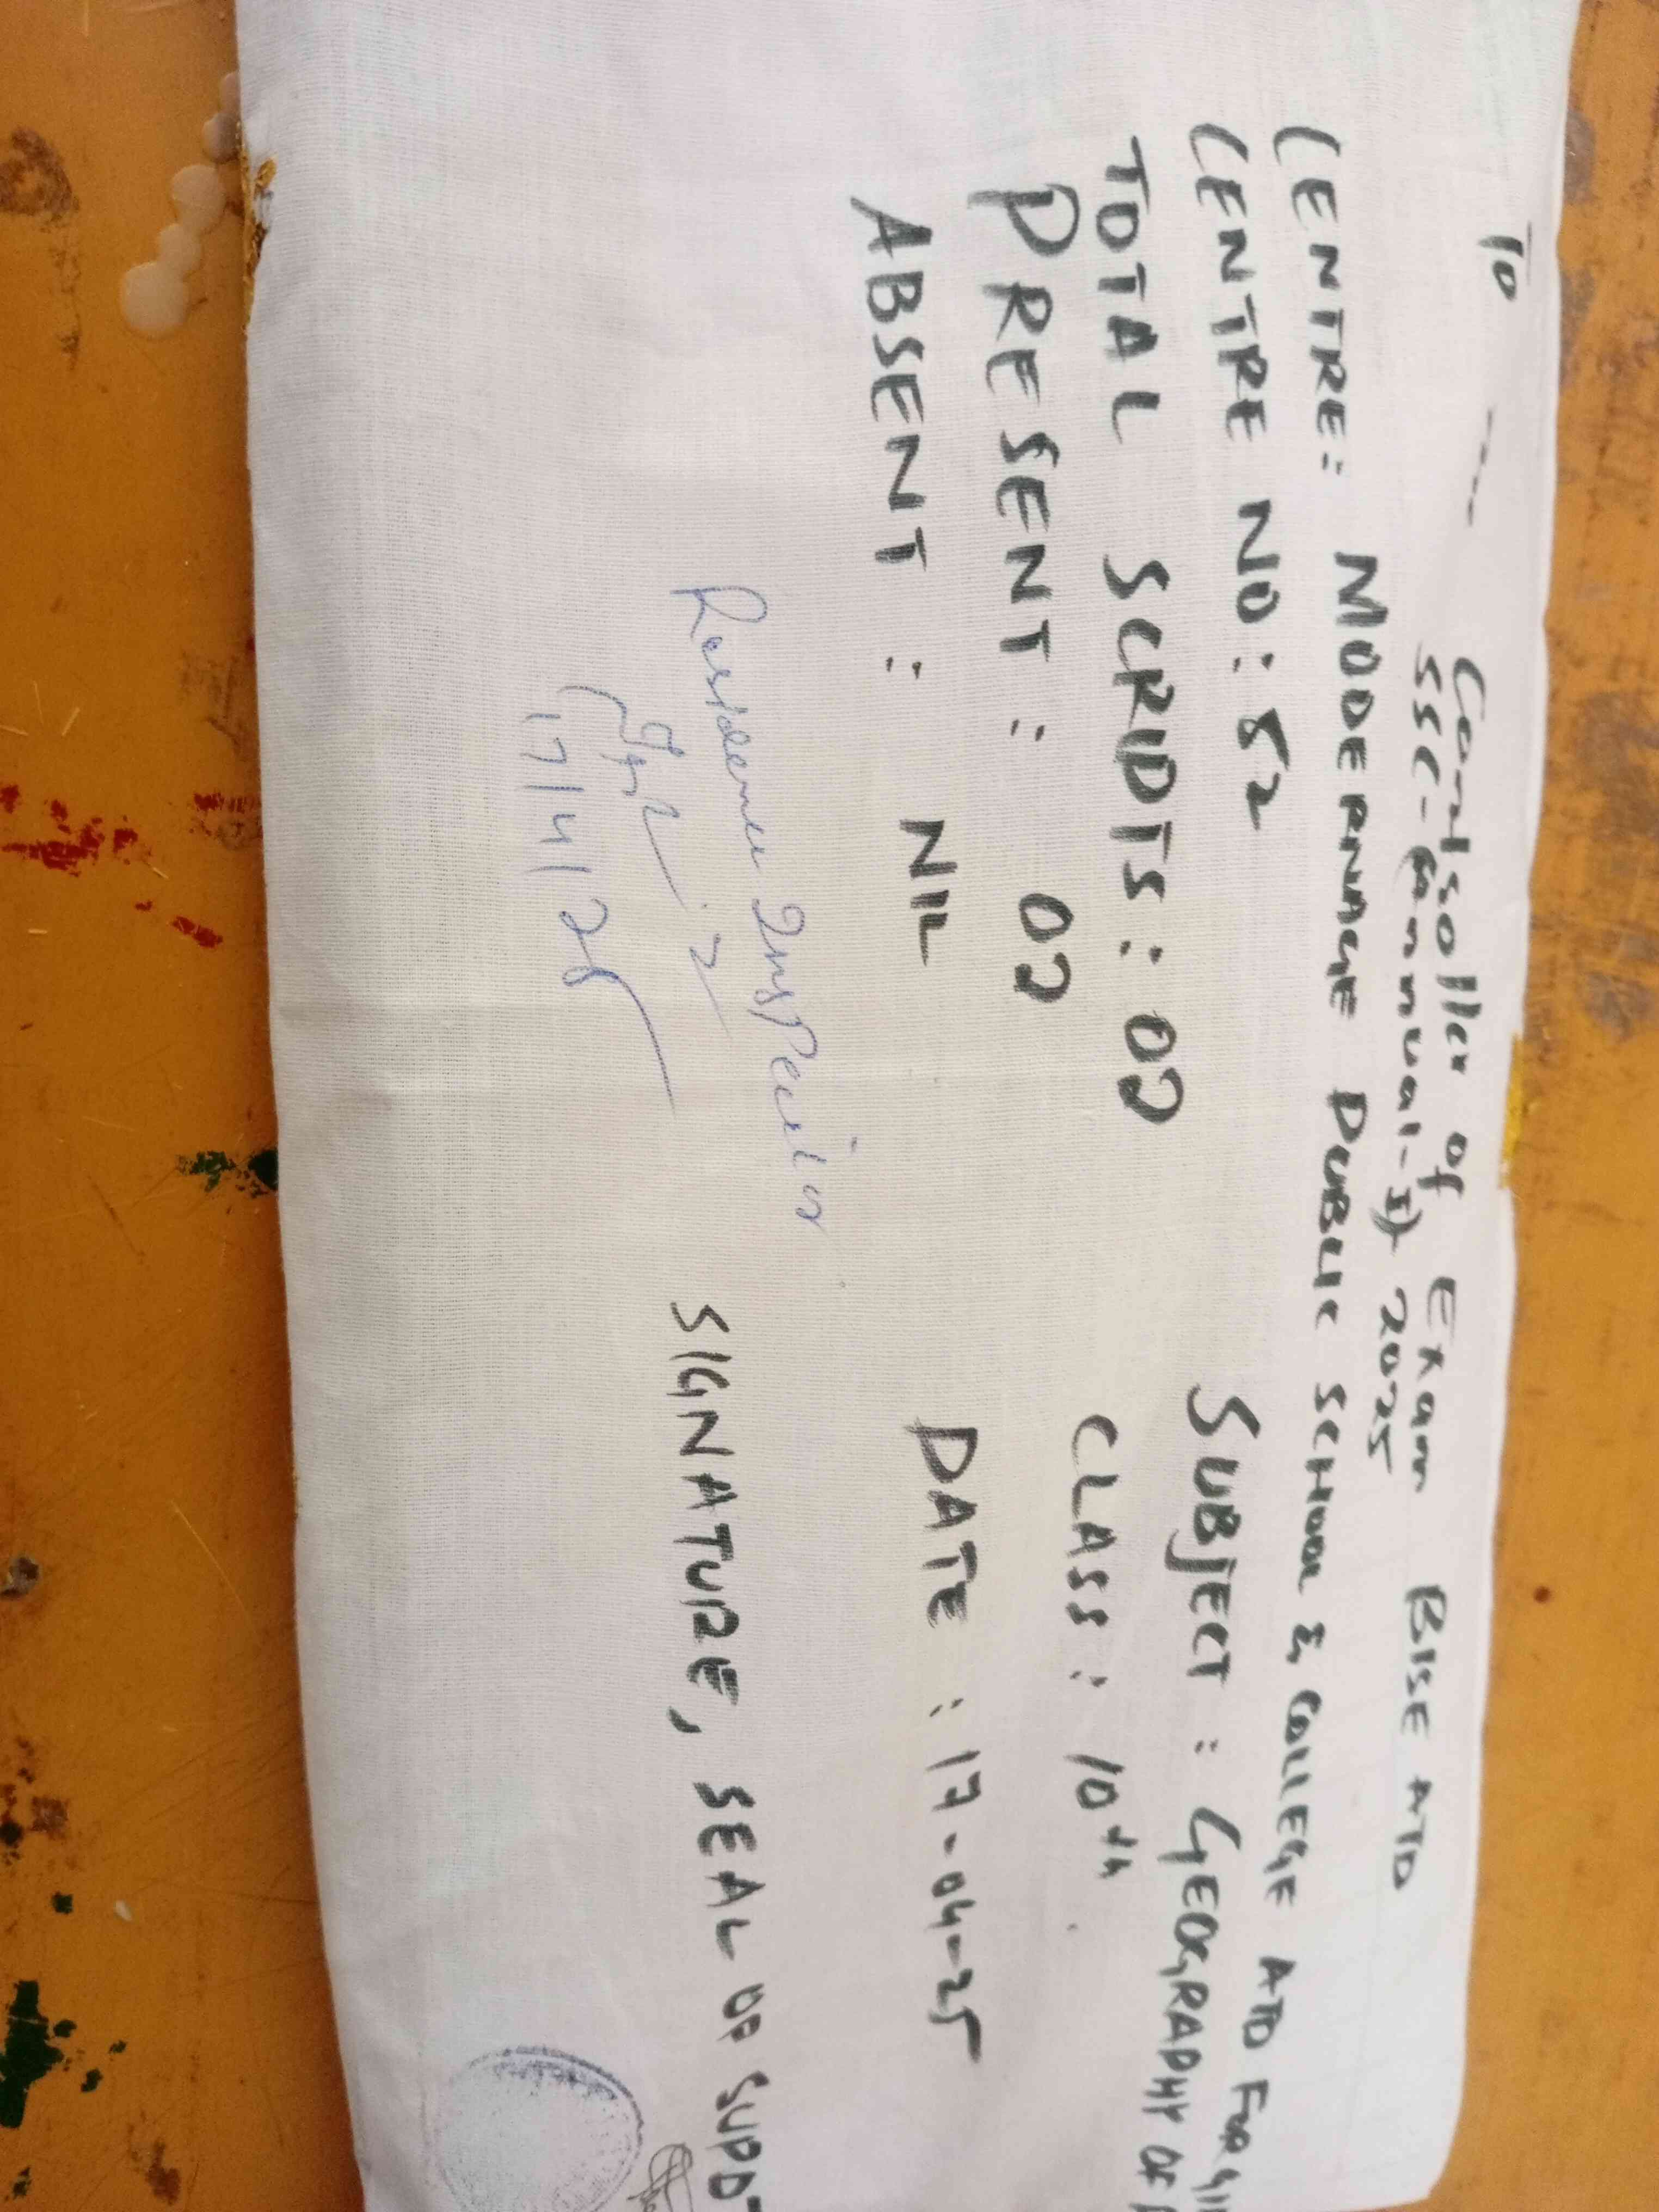 To ---
Controller of Exam BISE ATD
SSC-(Annual-I) 2025
CENTRE: MODERNAGE PUBLIC SCHOOL & COLLEGE ATD FOR
CENTRE NO: 52
SUBJECT: GEOGRAPHY OF
TOTAL SCRIPTS: 02
CLASS: 10th
PRESENT: 02
DATE: 17-04-25
ABSENT: NIL
Residence Inspector
17/4/25
SIGNATURE, SEAL OF SUPDT